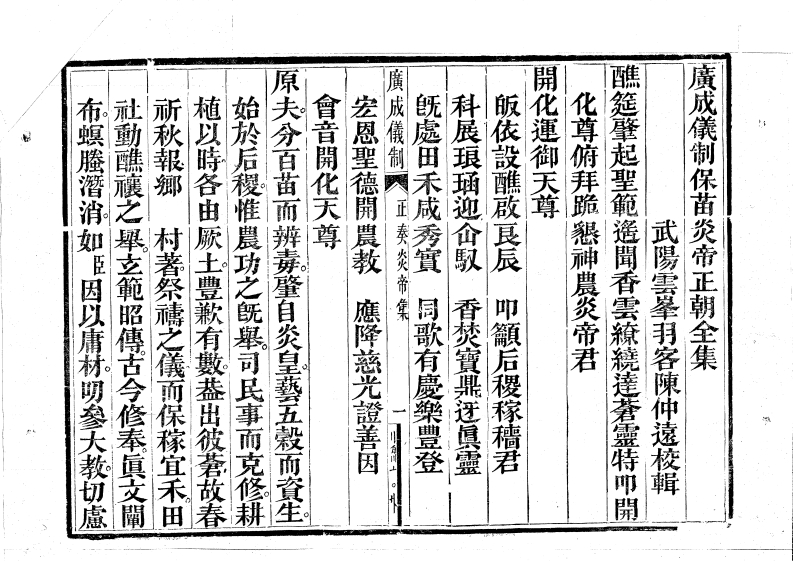 廣成儀制保苗炎帝正朝全集
武陽雲峯羽客陳仲遠校輯
醮筵肇起聖範遙聞香雲繚繞達蒼靈特叩開
化尊俯拜跪懇神農炎帝君
開化運御天尊
皈依設醮啟良辰 叩籲后稷稼穡君
科展琅函迎仚馭 香焚寶鼎迓眞靈
旣處田禾咸秀實 同歌有慶樂豐登
廣成儀制 正奏炎帝集 一
宏恩聖德開農教 應降慈光證善因
會音開化天尊
原夫分百苗而辨毒。肇自炎皇。藝五穀而資生。
始於后稷。惟農功之旣舉。司民事而克修。耕
植以時各由厥土。豐歉有數。盎出彼蒼。故春
祈秋報。鄉 村著。祭禱之儀而保稼宜禾。田
社動醮禳之舉。玄範昭傳。古今修奉。眞文闡
布。螟螣潛消。如臣因以庸材。明參大教。切慮